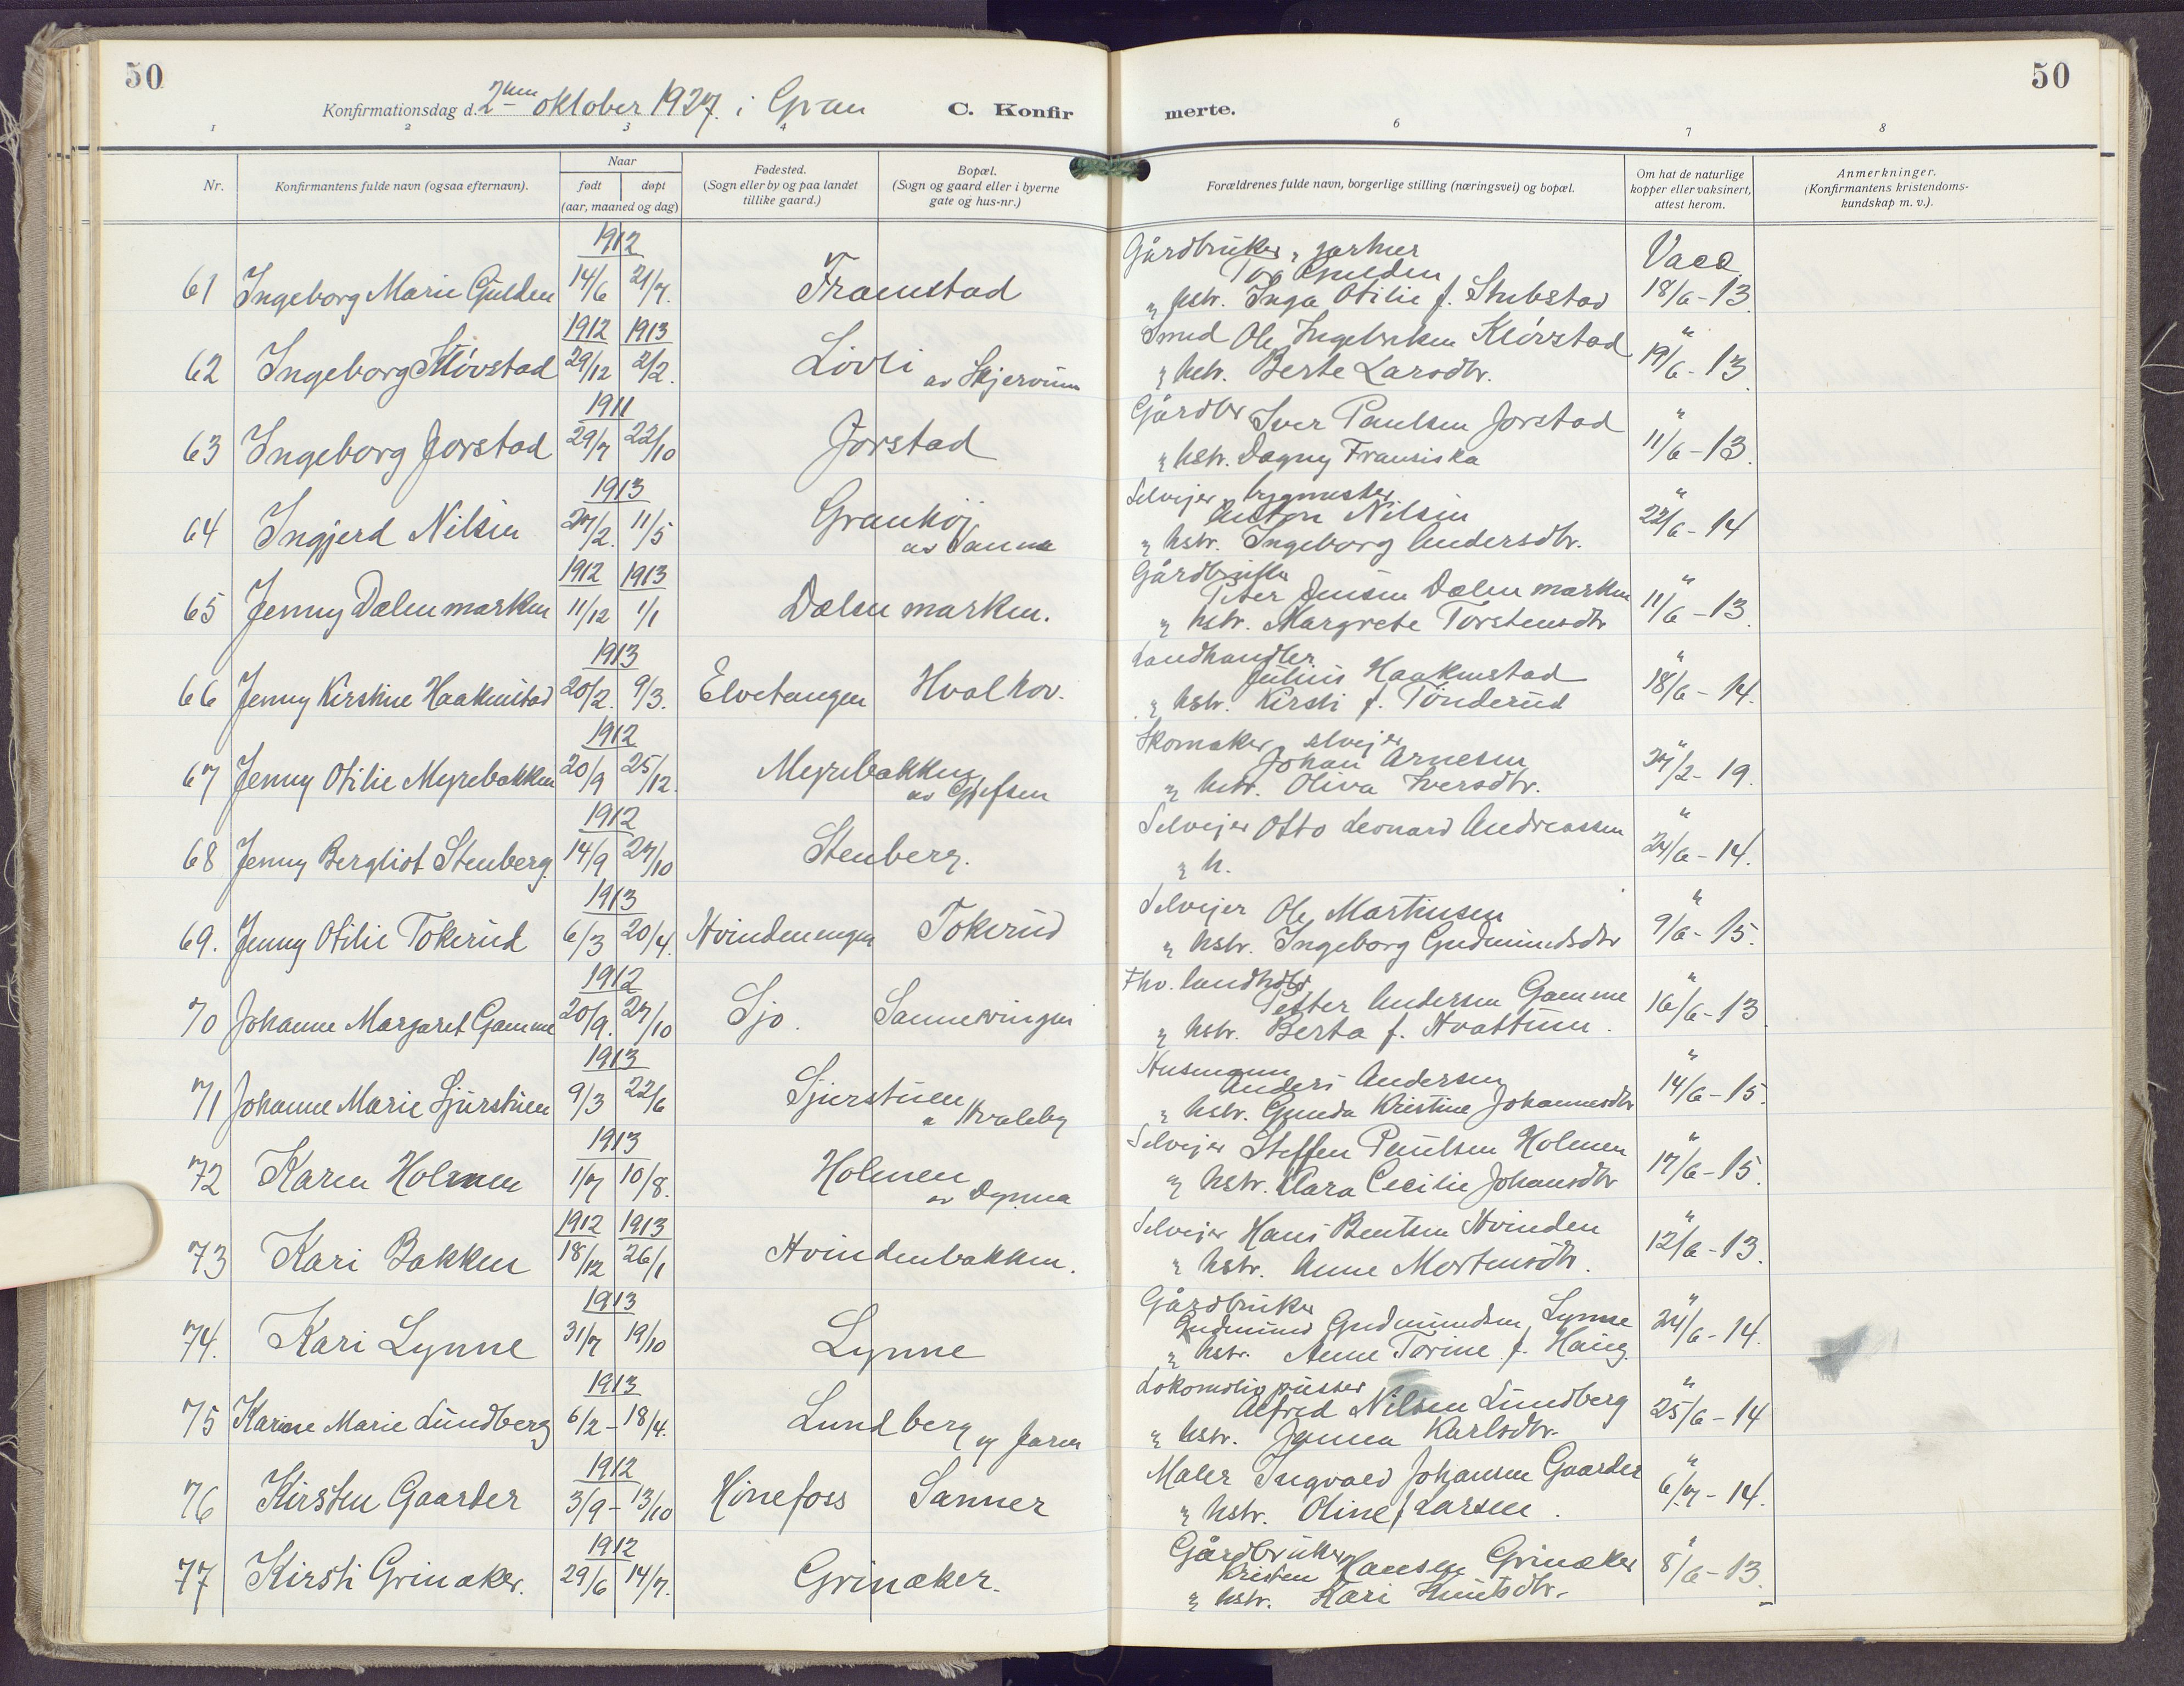 50
50
Konfirmationsdag d. 2den oktober 1927. i Gran
C. Konfirmerte.
1 2 3 4 6 7 8
Nr.
Konfirmantens fulde navn (ogsaa efternavn).
Naar
født
døpt
(aar, maaned og dag)
Fødested.
(Sogn eller by og paa landet
tillike gaard.)
Bopæl.
(Sogn og gaard eller i byerne
gate og hus-nr.)
Forældrenes fulde navn, borgerlige stilling (næringsvei) og bopæl.
Om hat de naturlige
kopper eller vaksinert,
attest herom.
Anmerkninger.
(Konfirmantens kristendoms-
kundskap m. v.).
1912
Gårdbruker, gartner
Vacc.
61 Ingeborg Marie Gulden 14/6 21/7. Framstad
Gulden
" hstr. Inga Otilie f. Stubstad 18/6-13.
1912 1913
62 Ingeborg Kløvstad 29/12 2/2. Løvli
av Skjervum
Smed Ole Ingebrktsen Kløvstad " 19/6-13.
" hstr. Berte Larsdtr.
1911
63 Ingeborg Jorstad 29/7 22/10 Jorstad
Gårdbr Iver Paulsen Jorstad " 11/6-13.
" hstr. Dagny Fransiska
1913
64 Ingjerd Nilsen 27/2. 11/5 Granhøj
av Sanne
Selvejer, bygmester
Anton Nilsen " 22/6-14
" hstr. Ingeborg Andersdtr.
1912 1913
65 Jenny Dælenmarken 11/12 1/1 Dælenmarken.
Gårdbruker
Peter Jensen Dælenmarken " 11/6-13.
" hstr. Margrete Torstensdtr
1913
66 Jenny Kirstine Haakenstad 20/2. 9/3. Elvetangen Hvalhov.
Landhandler
Julius Haakenstad " 18/6-14.
" hstr. Kirsti f. Tønderud
1912
67 Jenny Otilie Myrebakken 20/9 25/12. Myrebakken
av Gjefsen
Skomaker, selvejer
Johan Arnesen " 27/2-19.
" hstr. Oliva Iversdtr.
1912
68 Jenny Bergliot Stenberg. 14/9 27/10 Stenberg.
Selvejer Otto Leonard Andreassen " 24/6-14.
" h.
1913
69. Jenny Otilie Tokerud 6/3 20/4. Hvindenengen Tokerud
Selvejer Ole Martinsen " 9/6-15.
" hstr. Ingeborg Gudmundsdtr
1912
70 Johanne Margaret Gamme 20/9. 27/10 Sjo. Sannesvingen
Fhv. landhdlr
Petter Andersen Gamme " 16/6-13
" hstr. Berta f. Hvattum.
1913
71 Johanne Marie Sjurstuen 9/3 22/6 Sjurstuen
a Kvaleby
Husmann
Anders Andersen " 14/6-15.
" hstr. Gunda Kristine Johannesdtr
1913
72 Karen Holmen 1/7 10/8. Holmen
av Dynna
Selvejer Steffen Paulsen Holmen " 17/6-15.
" hstr. Clara Cecilie Johansdtr
1912 1913
73 Kari Bakken 18/12 26/1 Hvindenbakken.
Selvejer Hans Bentsen Hvinden " 12/6-13.
" hstr. Anne Mortensdtr.
1913
74. Kari Lynne 31/7 19/10 Lynne
Gårdbruker
Gudmund Gudmundsen Lynne " 24/6-14.
" hstr. Anne Torine f. Haug.
1913
75 Karine Marie Lundberg 6/2-18/4. Lundberg
Jaren
Lokomotivpusser
Alfred Nilsen Lundberg " 25/6-14
" hstr. Janna Karlsdtr.
1912
76 Kirsten Gaarder 3/9-13/10 Hønefoss Sanner
Maler Ingvald Johansen Gaarder " 6/7-14.
" hstr. Oline f. Larsen.
1912
77 Kirsti Grinaker. 29/6 14/7. Grinaker.
Gårdbruker
Kristen Hansen Grinaker " 8/6-13.
" hstr. Kari Knutsdtr.